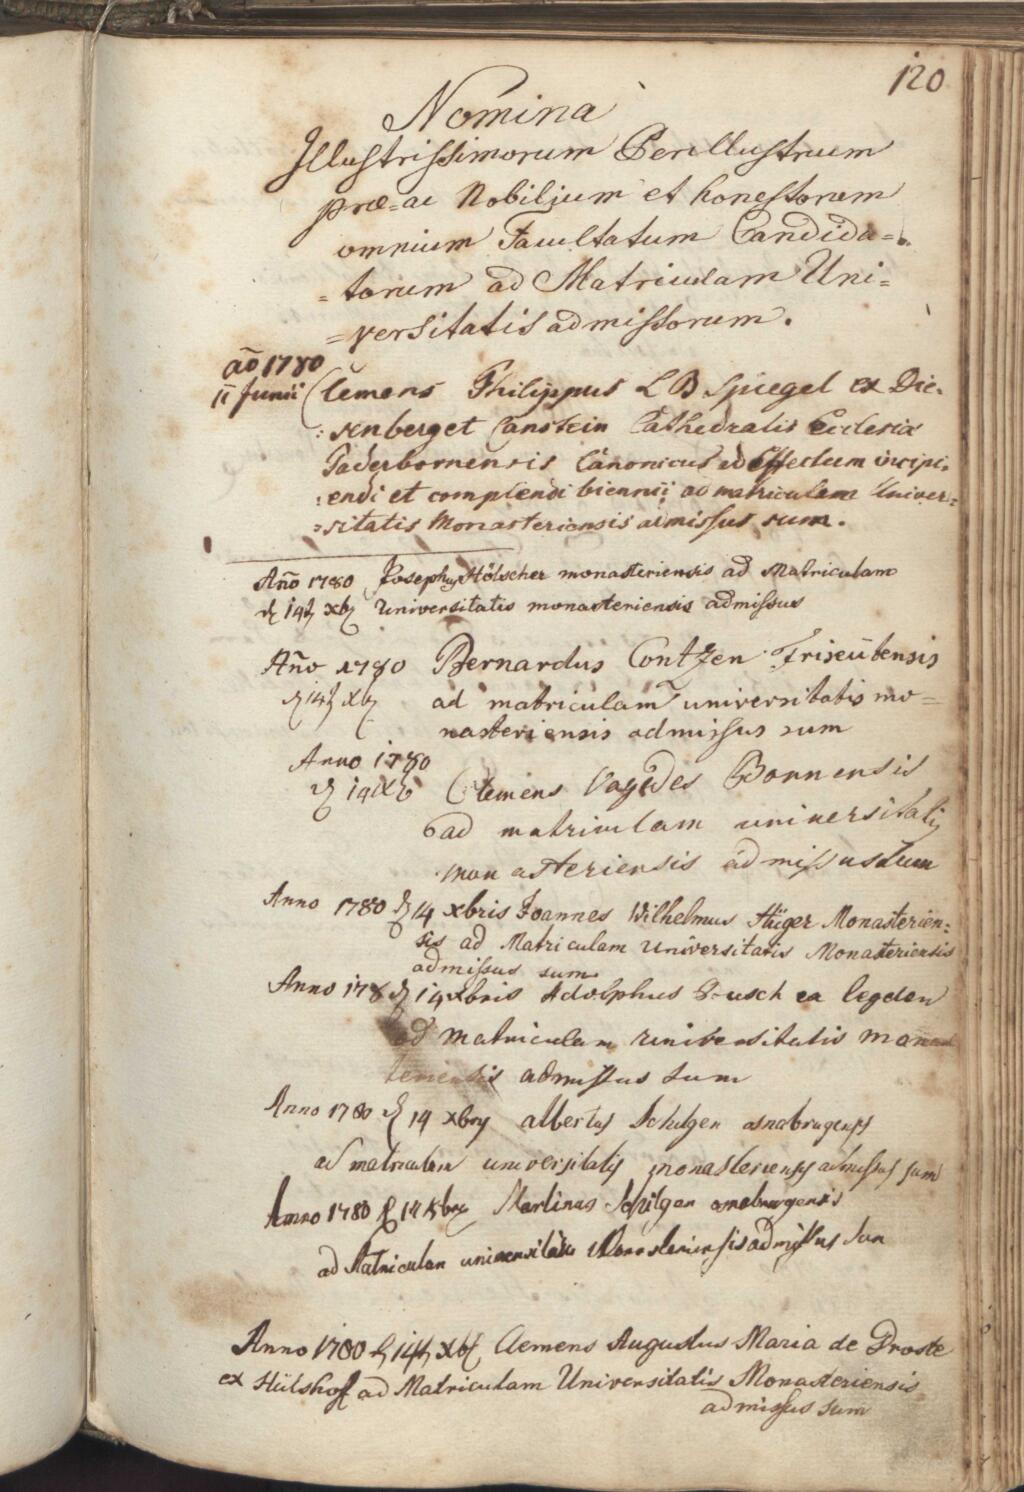 120
Nomina
Illustrissimorum Perillustrium
præ=ac Nobilium et honestorum
omnium Facultatum Candida=
=torum ad Matriculam Uni=
=versitatis admissorum.
aõ 1780
11 Junii Clemens Philippus L B Spiegel ex Die:
:senberg et Canstein Cathedralis Ecclesiæ
Paderbornensis Canonicus ad Effectum incipi:
:endi et complendi biennii ad matriculam Univer:
:sitatis Monasteriensis admissus sum.
Año 1780 Josephus Hölscher monasteriensis ad Matriculam
14 xb Universitatis monasteriensis admissus
Año 1780 Bernardus Contzen
14 xb ad matriculam universitatis mo=
nasteriensis admissus sum
Anno 1780
14 Xb Clemens Vagedes Bonnensis
ad matriculam universitatis
monasteriensis admissus sum
Anno 1780 14 xbris Joannes Wilhelmus Monasterien:
sis ad Matriculam Universitatis Monasteriensis
admissus sum
Anno 178 14 xbris Adolphus Busch ex legden
ad matriculam universitatis monas
teriensis admissus sum
Anno 1780 14 xbris albertus Schilgen osnabrugensis
ad matriculam universitatis monasteriensis admissus sum
Anno 1780 14 xbris Martinus Schilgen osnabrugensis
ad Matriculam universitatis Monasteriensis admissus sum
Anno 1780 14 xb Clemens Augustus Maria de Droste
ex Hülshof ad Matriculam Universitatis Monasteriensis
admissus sum